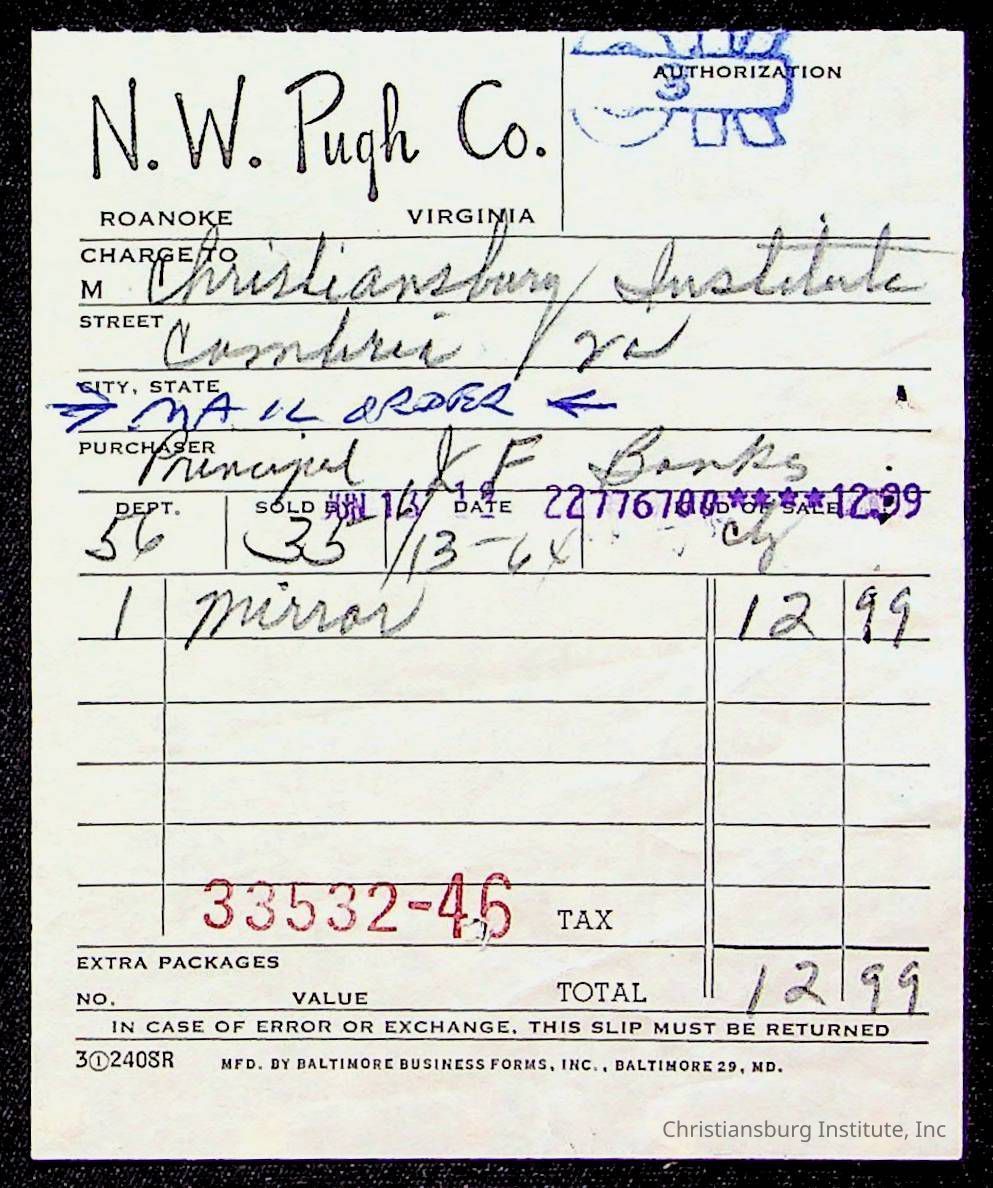 AUTHORIZATION
3
N. W. Pugh Co.
ROANOKE VIRGINIA
CHARGE TO
M Christiansburg Institute
STREET Cambria Va
CITY, STATE
MAIL ORDER
PURCHASER
Principal J F Banks
JUN 13 22776700****12.99
DEPT. SOLD BY DATE KIND OF SALE
56 35 6/13-64 chg
1 Mirror 12 99
33532-46 TAX
EXTRA PACKAGES
NO. VALUE TOTAL 12 99
IN CASE OF ERROR OR EXCHANGE, THIS SLIP MUST BE RETURNED
3①240SR MFD. BY BALTIMORE BUSINESS FORMS, INC., BALTIMORE 29, MD.
Christiansburg Institute, Inc